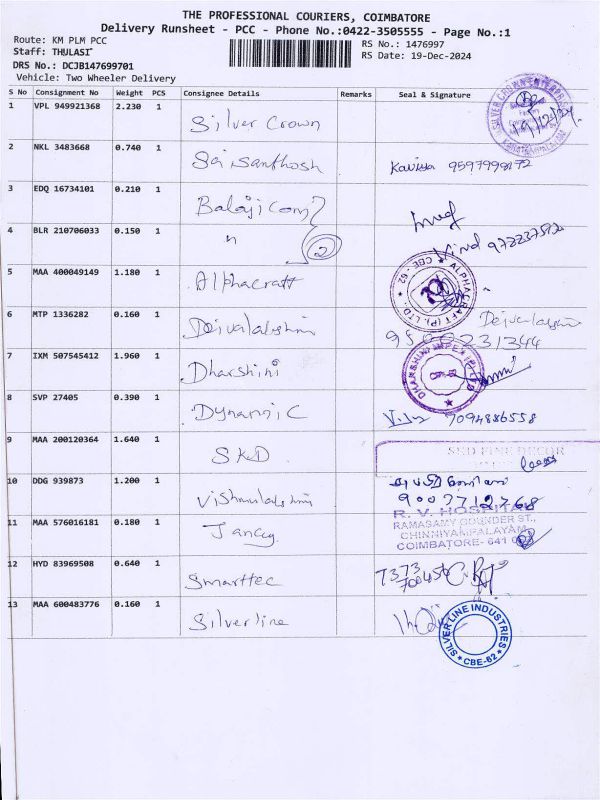 THE PROFESSIONAL COURIERS, COIMBATORE
Delivery Runsheet - PCC - Phone No.:0422-3505555 - Page No.:1
Route: KM PLM PCC
RS No.: 1476997
Staff: THULASI
RS Date: 19-Dec-2024
DRS No.: DCJB147699701
Vehicle: Two Wheeler Delivery
S No Consignment No Weight PCS Consignee Details Remarks Seal & Signature
1 VPL 949921368 2.230 1 Silver Crown
2 NKL 3483668 0.740 1 Sai santhosh Kaviya 9597999172
3 EDQ 16734101 0.210 1 Balaji conj
4 BLR 210706033 0.150 1 " 2
5 MAA 400049149 1.180 1 Alphacraft
ALPHACRAFT (P) LTD. CBE-62
6 MTP 1336282 0.160 1 Deivalakshmi Deivalakshmi
9500231344
7 IXM 507545412 1.960 1 Dharshini
8 SVP 27405 0.390 1 Dynamic 7094886558
9 MAA 200120364 1.640 1 SKD
SKD FINE DECOR
10 DDG 939873 1.200 1 Vishnulakshmi
9003712768
R. V. HOSPITAL
11 MAA 576016181 0.180 1 Jancy
RAMASAMY GOUNDER ST.,
CHINNIYAMPALAYAM
COIMBATORE- 641
12 HYD 83969508 0.640 1 Smarttec 7373
13 MAA 600483776 0.160 1 Silverline
SILVER LINE INDUSTRIES
CBE-62